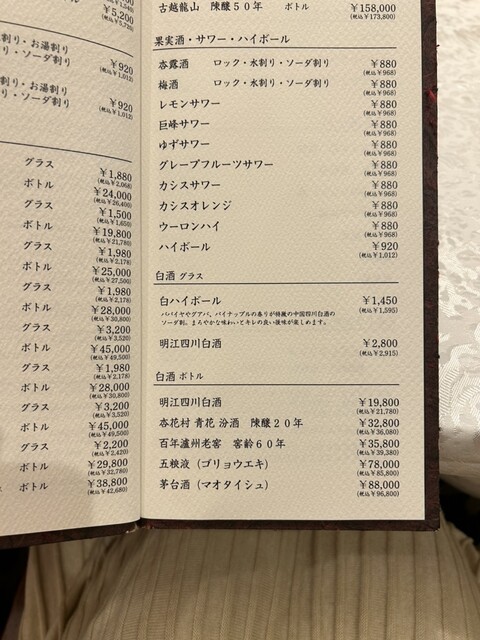 ¥5,200
(税込¥5,720)
水割り・お湯割り
り・ソーダ割り
¥920
(税込¥1,012)
水割り・お湯割り
り・ソーダ割り
¥920
(税込¥1,012)
グラス ¥1,880
(税込¥2,068)
ボトル ¥24,000
(税込¥26,400)
グラス ¥1,500
(税込¥1,650)
ボトル ¥19,800
(税込¥21,780)
グラス ¥1,980
(税込¥2,178)
ボトル ¥25,000
(税込¥27,500)
グラス ¥1,980
(税込¥2,178)
ボトル ¥28,000
(税込¥30,800)
グラス ¥3,200
(税込¥3,520)
ボトル ¥45,000
(税込¥49,500)
グラス ¥1,980
(税込¥2,178)
ボトル ¥28,000
(税込¥30,800)
グラス ¥3,200
(税込¥3,520)
ボトル ¥45,000
(税込¥49,500)
グラス ¥2,200
(税込¥2,420)
ボトル ¥29,800
(税込¥32,780)
ボトル ¥38,800
(税込¥42,680)
古越龍山 陳醸50年 ボトル ¥158,000
(税込¥173,800)
果実酒・サワー・ハイボール
杏露酒 ロック・水割り・ソーダ割り ¥880
(税込¥968)
梅酒 ロック・水割り・ソーダ割り ¥880
(税込¥968)
レモンサワー ¥880
(税込¥968)
巨峰サワー ¥880
(税込¥968)
ゆずサワー ¥880
(税込¥968)
グレープフルーツサワー ¥880
(税込¥968)
カシスサワー ¥880
(税込¥968)
カシスオレンジ ¥880
(税込¥968)
ウーロンハイ ¥880
(税込¥968)
ハイボール ¥920
(税込¥1,012)
白酒 グラス
白ハイボール ¥1,450
(税込¥1,595)
パパイヤやグアバ、パイナップルの香りが特徴の中国四川白酒の
ソーダ割。まろやかな味わいとキレの良い後味が楽しめます。
明江四川白酒 ¥2,800
(税込¥2,915)
白酒 ボトル
明江四川白酒 ¥19,800
(税込¥21,780)
杏花村 青花 汾酒 陳醸20年 ¥32,800
(税込¥36,080)
百年瀘州老窖 窖齢60年 ¥35,800
(税込¥39,380)
五粮液(ゴリョウエキ) ¥78,000
(税込¥85,800)
茅台酒(マオタイシュ) ¥88,000
(税込¥96,800)